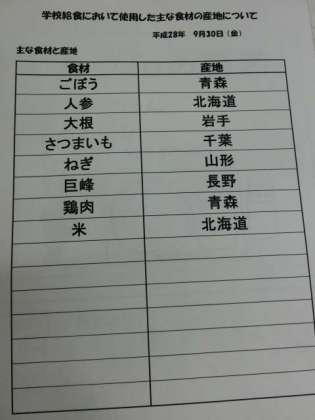 学校給食において使用した主な食材の産地について
平成28年　9月30日（金）
主な食材と産地
食材　産地
ごぼう　青森
人参　北海道
大根　岩手
さつまいも　千葉
ねぎ　山形
巨峰　長野
鶏肉　青森
米　北海道